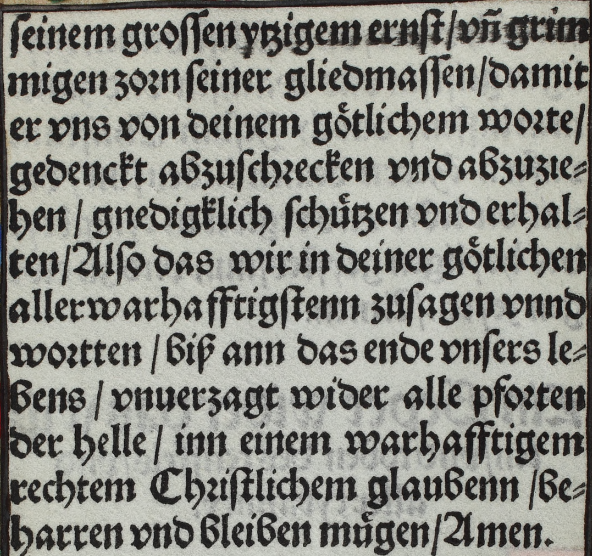 ſeinem groſſen ytzigem ernſt/vn̄ grim
migen zorn ſeiner gliedmaſſen/damit
er vns von deinem goͤtlichem worte/
gedenckt abzuſchrecken vnd abzuzie⸗
hen / gnedigklich ſchuͤtzen vnd erhal⸗
ten/Alſo das wir in deiner goͤtlichen
allerwarhafftigſtenn zuſagen vnnd
wortten / biß ann das ende vnſers le⸗
bens / vnuerzagt wider alle pforten
der helle / inn einem warhafftigem
rechtem Chriſtlichem glaubenn /be⸗
harren vnd bleiben muͤgen/Amen.